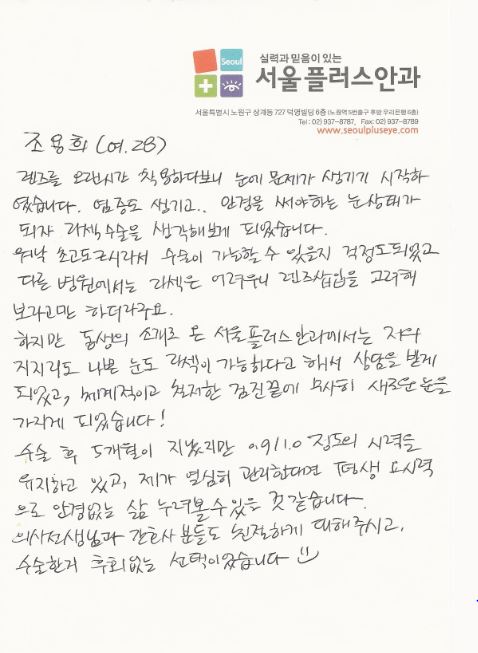 Seoul
실력과 믿음이 있는
서울플러스안과
서울특별시 노원구 상계동 727 덕영빌딩 6층 (노원역 5번출구 후방 우리은행 6층)
Tel : 02) 937-8787, Fax: 02) 937-8789
www.seoulpluseye.com
조용희 (여. 28)
렌즈를 오랜시간 착용하다보니 눈에 문제가 생기기 시작하
였습니다. 염증도 생기고.. 안경을 써야하는 눈상태가
되자 라섹수술을 생각해보게 되었습니다.
워낙 초고도근시라서 수술이 가능할 수 있을지 걱정도되었고
다른 병원에서는 라섹은 어려우니 렌즈삽입을 고려해
보라고만 하더라구요.
하지만 동생의 소개로 온 서울플러스안과에서는 저와
지지리도 나쁜 눈도 라섹이 가능하다고 해서 상담을 받게
되었고, 체계적이고 철저한 검진끝에 무사히 새로운 눈을
가지게 되었습니다!
수술 후 5개월이 지났지만 0.9/1.0 정도의 시력을
유지하고 있고, 제가 열심히 관리한다면 평생 요시력
으로 안경없는 삶 누려볼 수 있을 것 같습니다.
의사선생님과 간호사 분들도 친절하게 대해주시고,
수술한거 후회없는 선택이었습니다